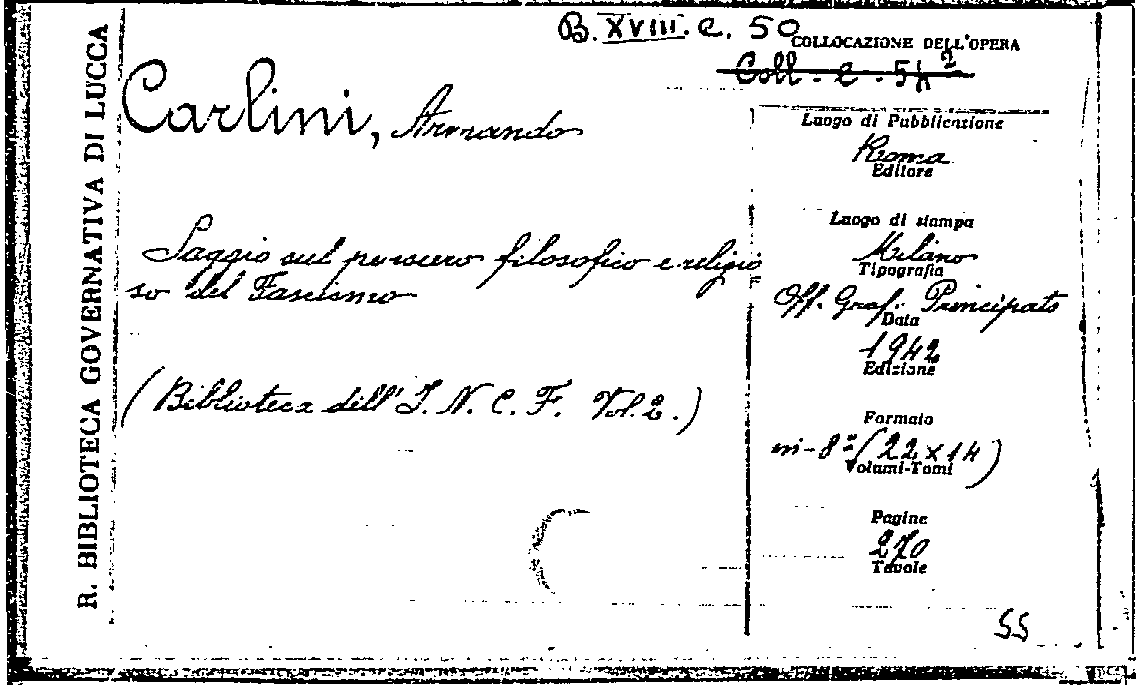 R. BIBLIOTECA GOVERNATIVA DI LUCCA
B. XVIII. C. 50
COLLOCAZIONE DELL'OPERA
Coll - e - 54²
Carlini, Armando
Saggio sul pensiero filosofico e religio
so del Fascismo
(Biblioteca dell' I. N. C. F. Vol. 2.)
Luogo di Pubblicazione
Roma
Editore
Luogo di stampa
Milano
Tipografia
Off. Graf. Principato
Data
1942
Edizione
Formato
in-8° (22 x 14)
Volumi-Tomi
Pagine
270
Tavole
SS